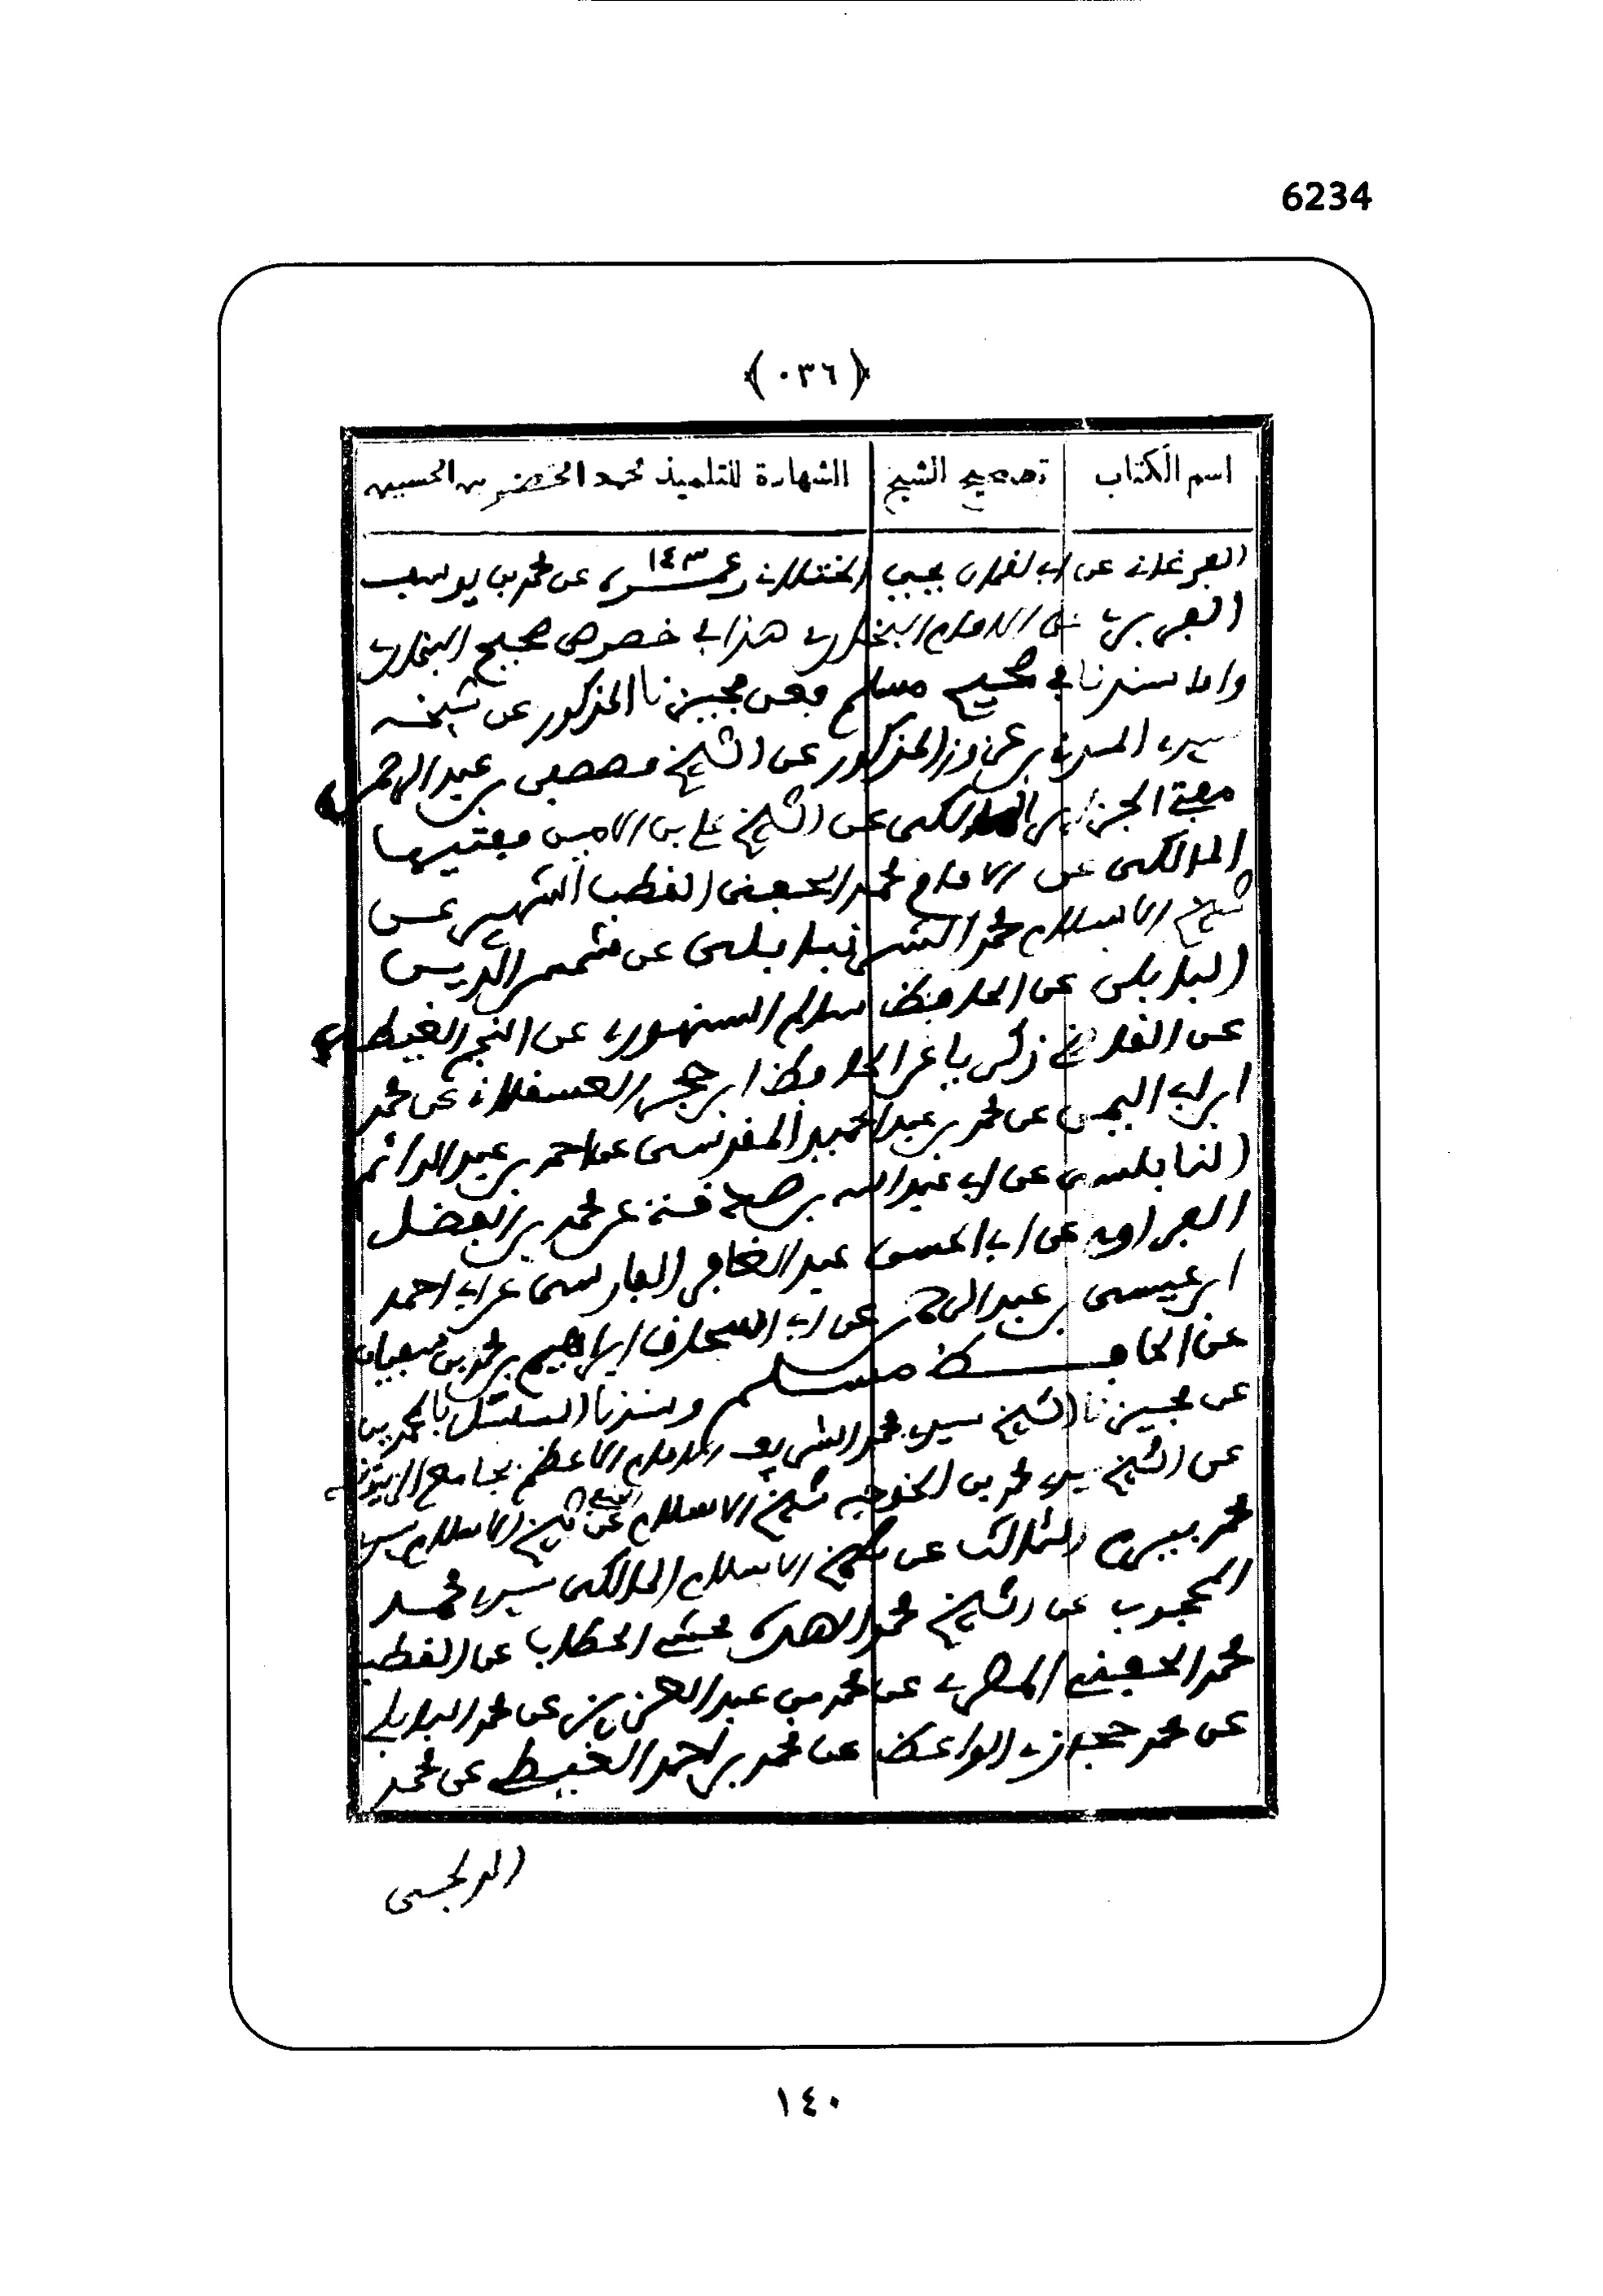 6234
﴿٠٣٦﴾
اسم الكتاب تصحيح الشيخ الشهادة للتلميذ محمد الخضر بن الحسين
الفرغاني عن ابي لقمان يحيى الختلاني وعمره ١٤٣ عن محمد بن يوسف
الفربري عن الامام البخاري هذا في خصوص صحيح البخاري
واما سندنا في صحيح مسلم فعن مجيزنا المذكور عن شيخه
سيدي المدني بن عزوز المذكور عن الشيخ مصطفى بن عبد الرحمن
مفتي الجزائر المالكي عن الشيخ علي بن الامين مفتيها
المالكي عن الامام محمد الحفني القطب الشهير عن
شيخ الاسلام محمد الشرنبابلي عن شمس الدين
البابلي عن الحافظ سالم السنهوري عن النجم الغيطي
عن القاضي زكرياء عن الحافظ ابن حجر العسقلاني عن محمد
ابن ابي اليمن عن محمد بن عبد الحميد المقدسي عن احمد بن عبد الدائم
النابلسي عن ابي عبد الله بن صدقة عن محمد بن الفضل
الفراوي عن ابي الحسن عبد الغافر الفارسي عن ابي احمد
ابن عيسى بن عبد الرحمن عن ابي اسحاق ابراهيم بن محمد بن سفيان
عن الحافظ مسلم وسندنا المسلسل بالمحمدين
عن مجيزنا الشيخ سيدي محمد الشريف الامام الاعظم بجامع الزيتونة
عن الشيخ سيدي محمد بن الخوجه شيخ الاسلام عن شيخ الاسلام سيدي
محمد بيرم الثالث عن شيخ الاسلام المالكي سيدي محمد
المحجوب عن الشيخ محمد الهدة محشي الحطاب عن القطب
محمد الحفني المصري عن محمد بن عبد العزيز عن محمد البابلي
عن محمد حجازي الواعظ عن محمد بن احمد الغيطي عن محمد
الدلجي
١٤٠